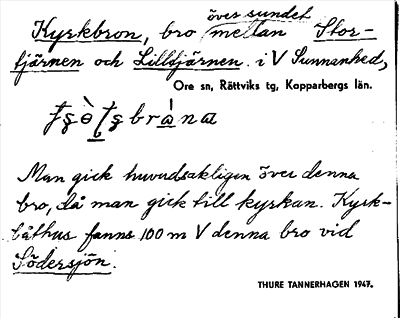 Kyrkbron, bro över sundet mellan Stor-
tjärnen och Lilltjärnen i V Sunnanhed,
Ore sn, Rättviks tg, Kopparbergs län.
Man gick huvudsakligen över denna
bro, då man gick till kyrkan. Kyrk-
båthus fanns 100 m V denna bro vid
Södersjön.
THURE TANNERHAGEN 1947.